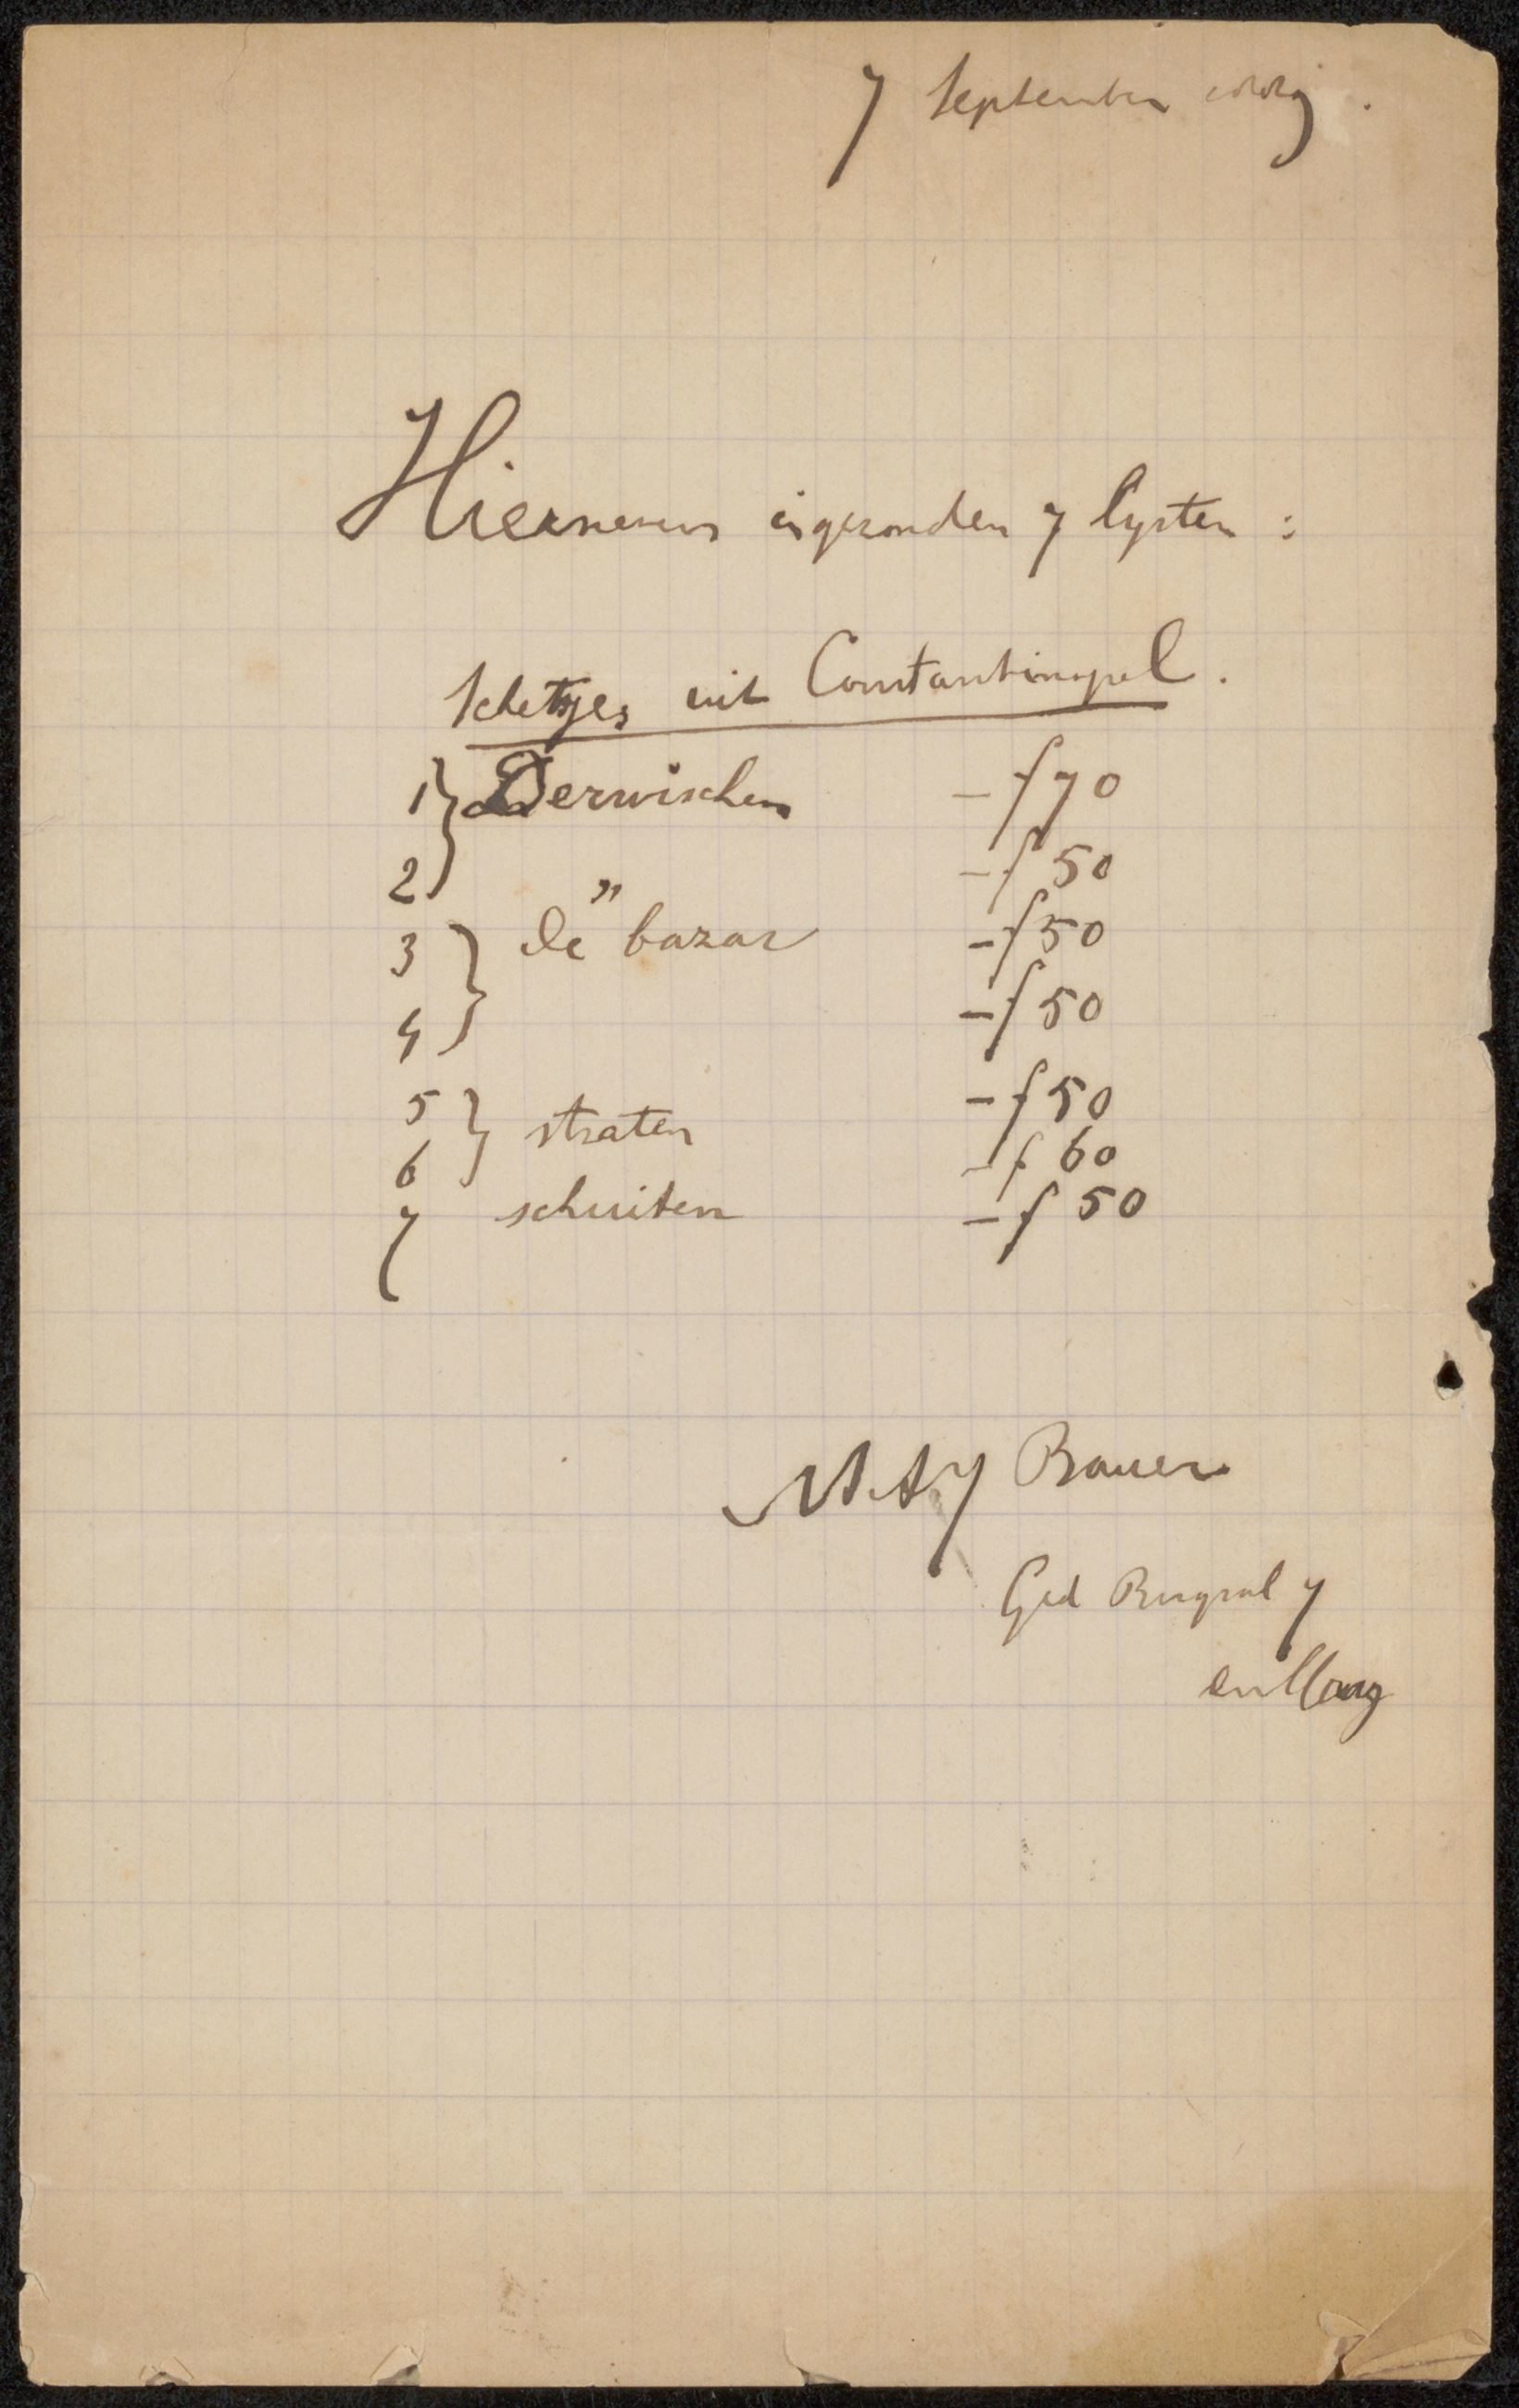 7 September
Hiernevens is gezonden 7 lysten :
Schetsjes uit Constantinopel.
1 } Derwischen – f 70
2 } " – f 50
3 } de bazar – f 50
4 } – f 50
5 } straten – f 50
6 } – f 60
7 schuiten – f 50
M.A.J Bauer
Ged Burgwal 7